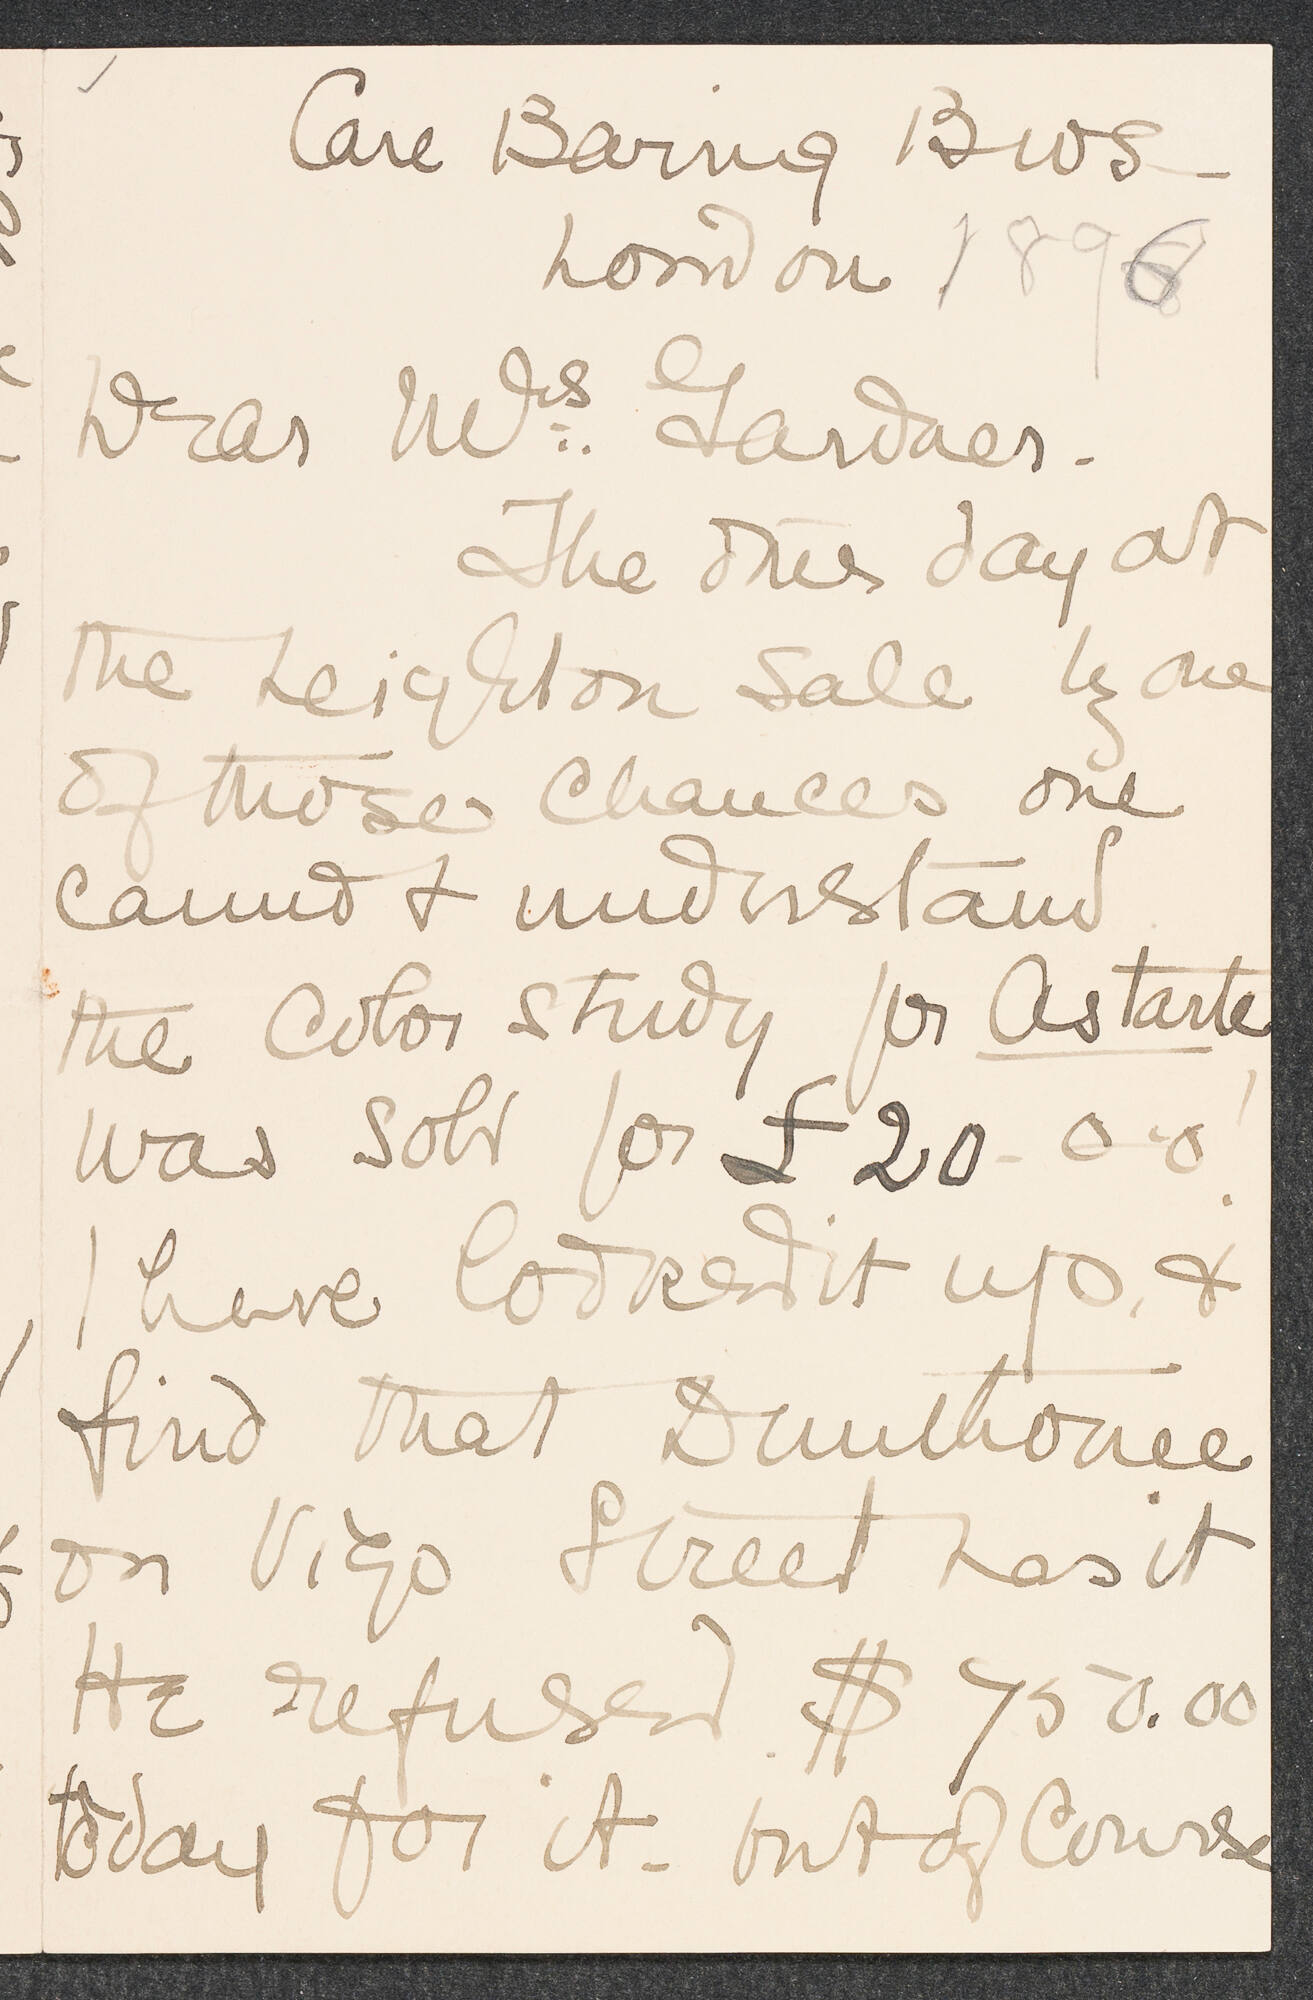 Care Baring Bros -
London 1896
Dear Mrs. Gardner.
The other day at
the Leighton Sale by one
of those chances one
cannot understand
the Color study for Astarte
was sold for £20-0-0!
I have looked it up, &
find that Dunthorne
on Vigo Street has it
He refused $750.00
today for it - but of Course